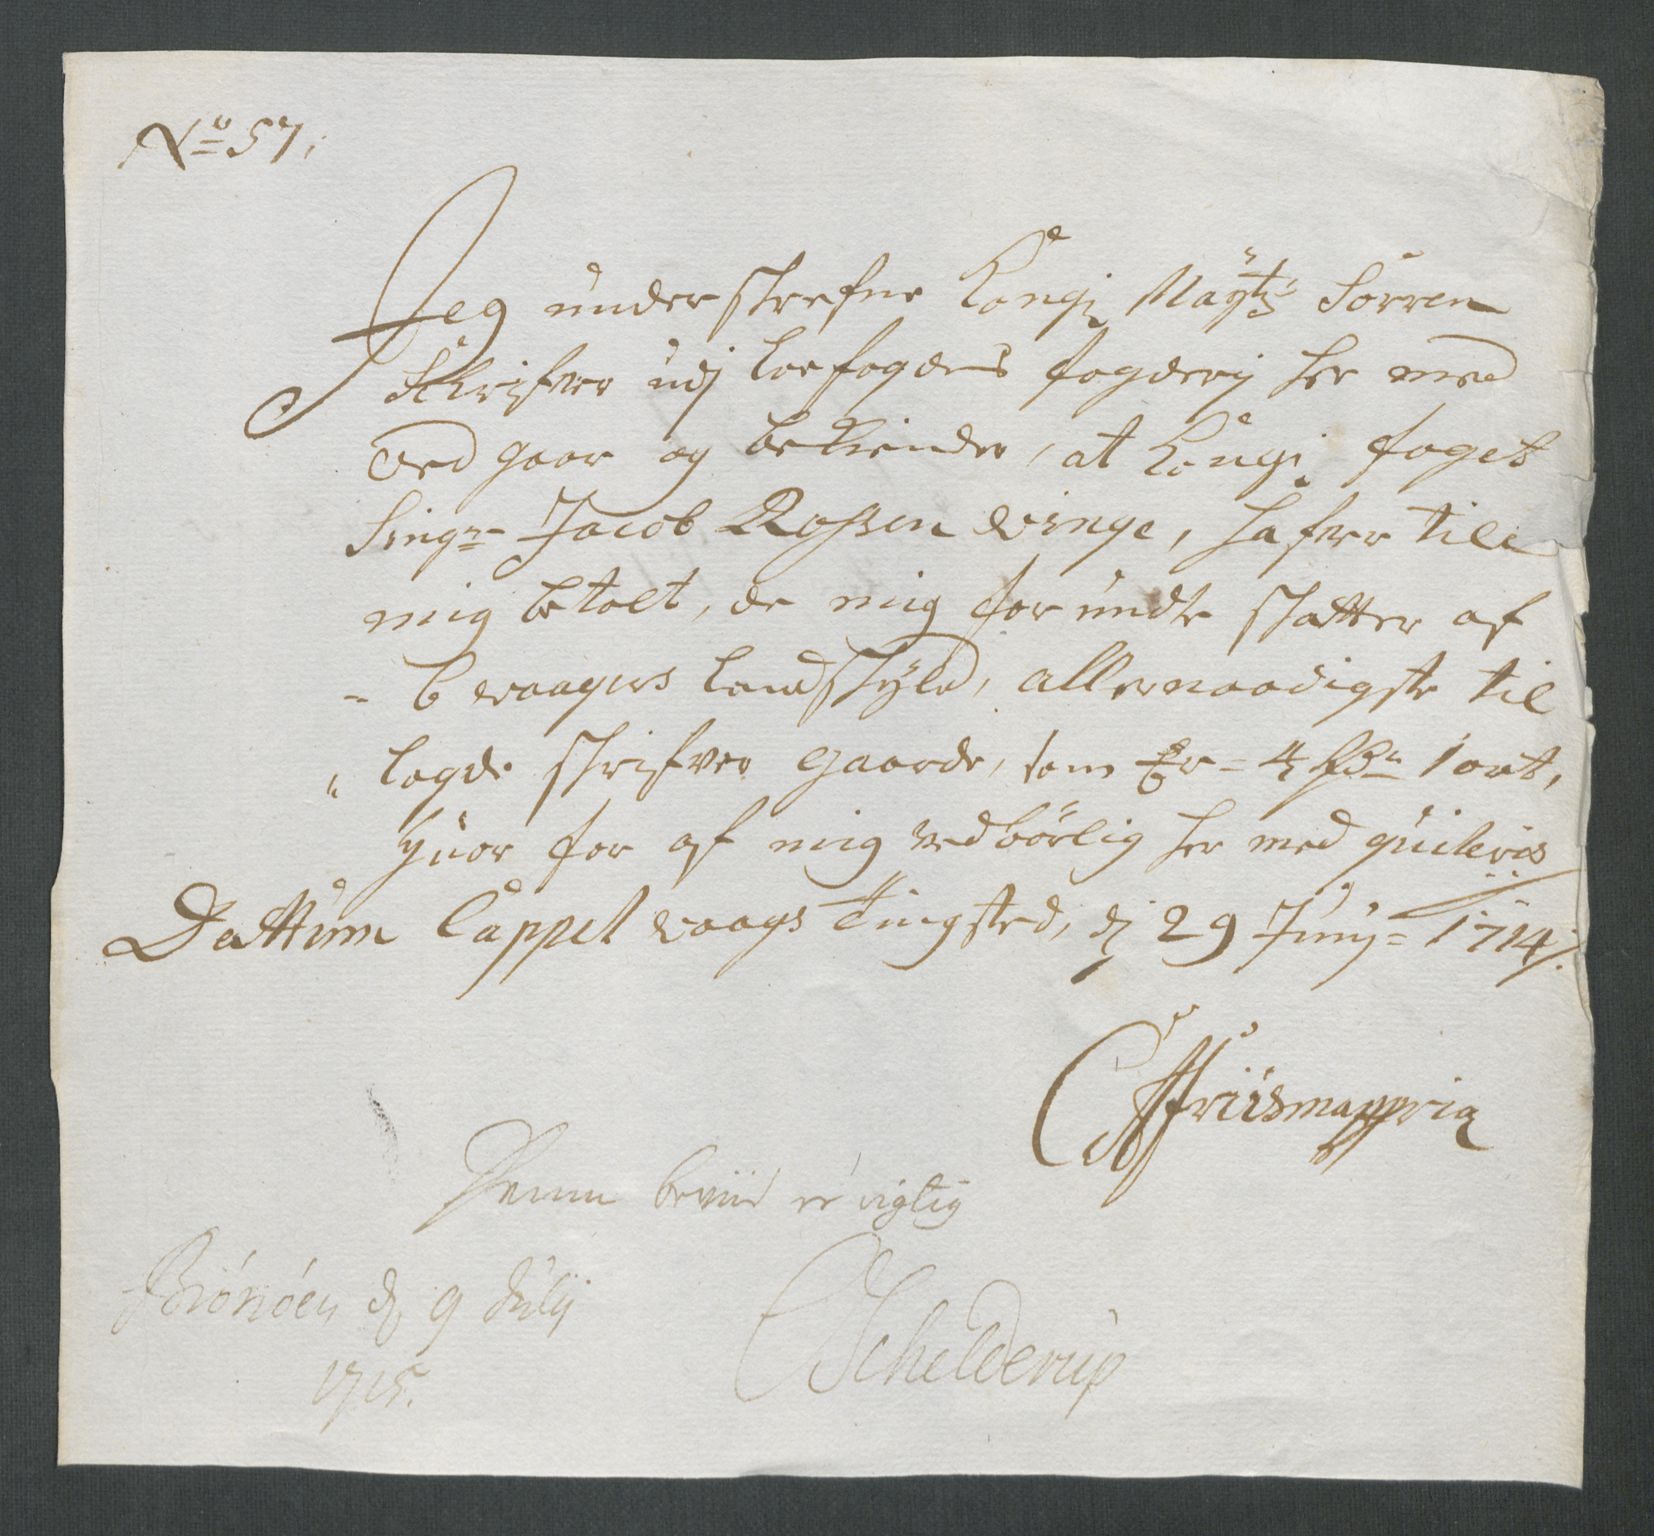 No 57,
Jeg underskrefne Kongl Maÿtz Sorren
Skrifver udj Loefogdens fogderij her med
ved gaar og bekiender, at Kongl foget
Singr Jacob Rossen winge, hafver till
mig betalt, de mig forundte skatter af
- 6 waagers Landskÿld, allernaadigste til
" lagde skrifver gaarde, som Er = 4 Rdr 1 ort,
huor for af mig vedbörlig her med quiteris
Dattum Cappel waags Tingsted, dj 29 Junij = 1714/.
Friis mappria
Denne beviis er rigtig
Brönöen d 9 Julij
1715.
Schelderup